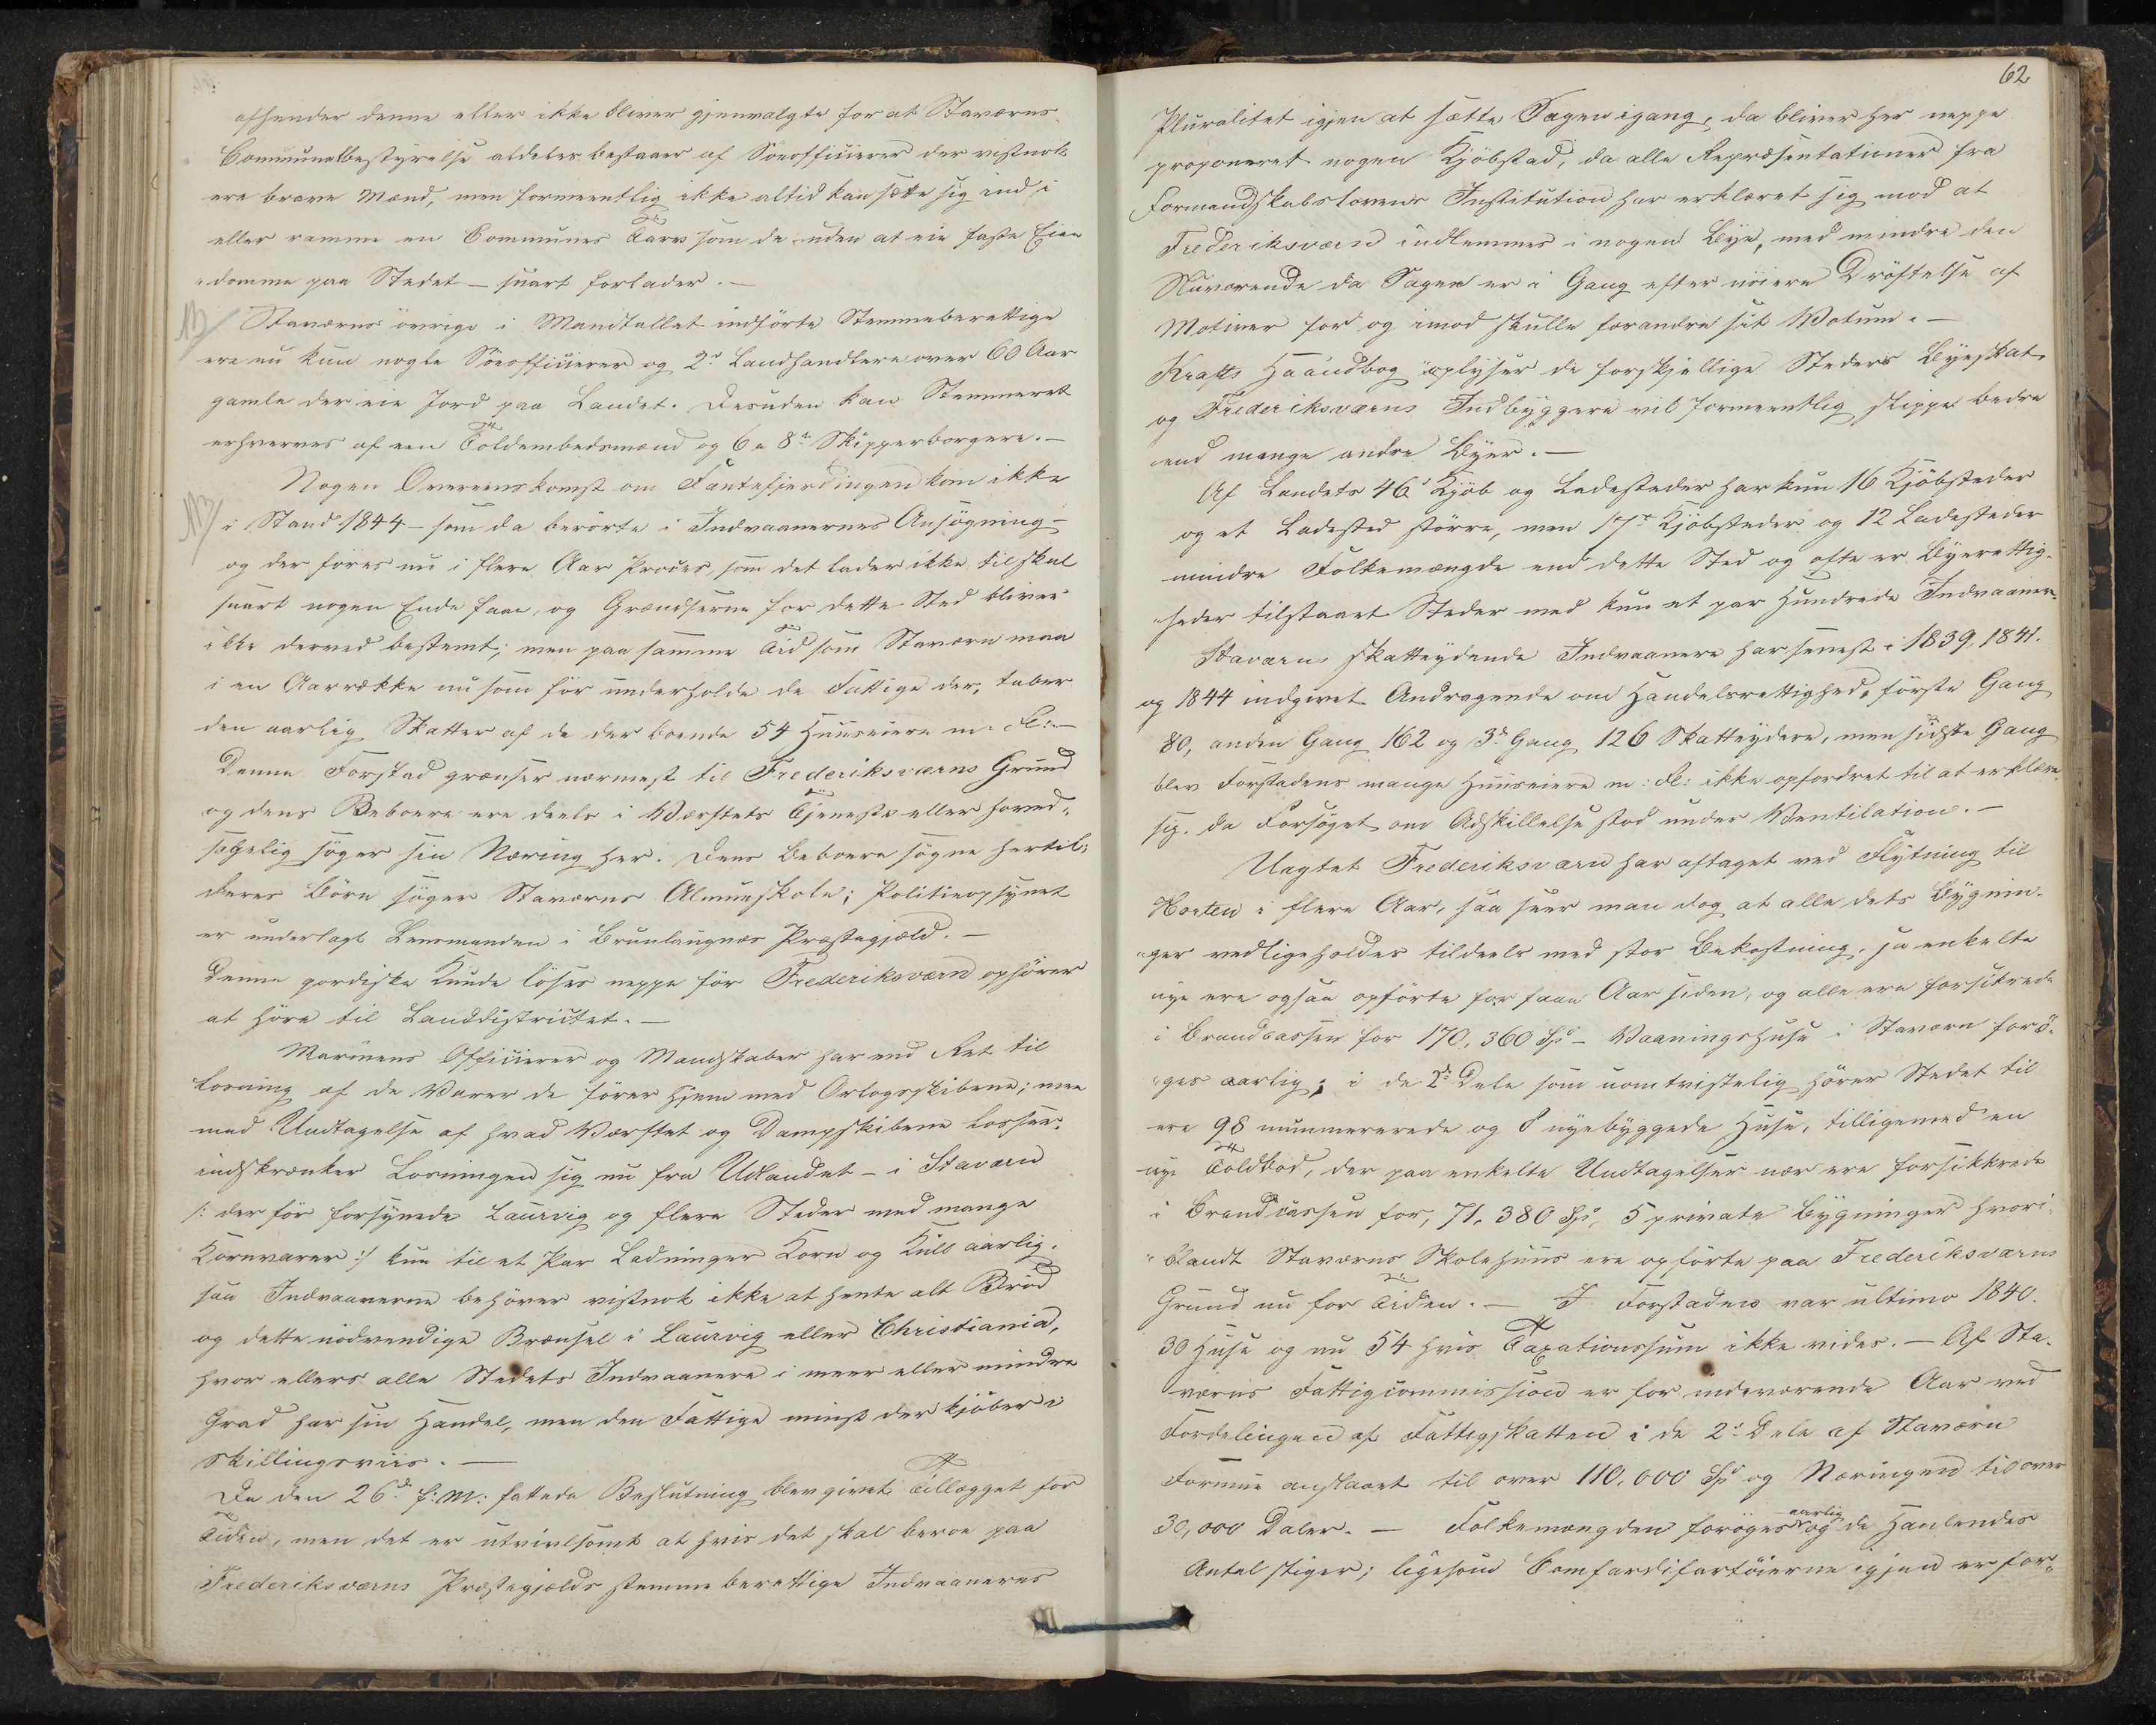 afsender denne eller ikke bliver gjenvalgte for at Staværns
Communalbestyrelse aldeles bestaaer af Søeofficierer der vistnok
ere brave Mænd, men formeentlig ikke altid kan sætte sig ind i
eller ramme en Communes Tarv som de uden at eie faste Eien
domme paa Stedet – snart forlader. –
NB/ Staværns övrige i Mandtallet indförte Stemmeberettige
ere nu kun nogle Söeofficierer og 2de Landhandlere over 60 Aar
gamle der eie Jord paa Landet. Desuden kan Stemmeret
erhverves af een Toldembedsmand og 6 a 8te Skipperborgere. –
Nogen Overeenskomst om Fantefjerdingen kom ikke
NB/ i Stand 1844 – som da berörte i Indvaanernes Ansögning –
og der föres nu i flere Aar Proces, som det lader ikke til skal
snart nogen Ende faae, og Grændserne for dette Sted bliver
ikke derved bestemt; men paa samme Tid som Staværn maa
i en Aarrække nu som för underholde de Fattige der, taber
den aarlig Skatter af de der boende 54 Huuseiere m. fl: –
Denne Forstad grænser nærmest til Frederiksværns Grund
og dens Beboere ere deels i Værftets Tjeneste eller hoved-
sagelig söger sin Næring her. Dens Beboere sögne hertil;
deres Börn söger Staværns Almueskole; Politieopsynet
er underlagt Lensmanden i Brunlaugnæs Præstegjæld. –
Denne gordiske Knude löses neppe för Frederiksværn ophörer
at höre til Landdistrictet. –
Marinens Officierer og Mandskaber har end Ret til
Losning af de Varer de förer hjem med Orlogsskibene; men
med Undtagelse af hvad Værftet og Dampskibene losser,
indskrænker Losningen sig nu fra Udlandet – i Staværn
/: der för forsynede Laurvig og flere Steder med mange
Kornvarer :/ kun til et Par Ladninger Korn og Kull aarlig,
saa Indvaanerne behöver vistnok ikke at hente alt Bröd
og dette nödvendige Brænsel i Laurvig eller Christiania,
hvor ellers alle Stedets Indvaanere i meer eller mindre
Grad har sin Handel, men den Fattige minst der kjöber i
Skillingsviis. –
Da den 26de f: M: fattede Beslutning blev givet Tillægget for
Tiden, men det er utvivlsomt at hvis det skal beroe paa
Frederiksværns Præstegjælds stemmeberettige Indvaaneres
62
Pluralitet igjen at sætte Sagen igang, da bliver her neppe
proponeret nogen Kjöbstad, da alle Repræsentationer fra
Formandskabslovens Institution har erklæret sig mod at
Frederiksværn indlemmes i nogen Bye, med mindre den
Nuværende da Sagen er i Gang efter nöiere Dröftelse af
Motiver for og imod skulle forandre sit Votum. –
Krafts Haandbog oplyser de forskjellige Steders Byeskat
og Frederiksværns Indbyggere vil formeentlig slippe bedre
end mange andre Byer. –
Af Landets 46 Kjöb og Ladesteder har kun 16 Kjöbsteder
og et Ladested större, men 17 Kjöbsteder og 12 Ladesteder
mindre Folkemængde end dette Sted og ofte er Byerettig-
heder tilstaaet Steder med kun et par Hundrede Indvaaner.
Staværns skatteydende Indvaanere har senest i 1839, 1841.
og 1844 indgivet Andragende om Handelsrettighed, förste Gang
80, anden Gang 162 og 3de Gang 126 Skatteydere, men sidste Gang
blev Forstadens mange Huuseiere m: fl: ikke opfordret til at erklære
sig, da Forsöget om Adskillelse stod under Ventilation. –
Uagtet Frederiksværn har aftaget ved Flytning til
Horten i flere Aar, saa seer man dog at alle dets Bygnin-
ger vedligeholdes tildeels med stor Bekostning, ja enkelte
nye ere ogsaa opförte for faae Aar siden, og alle ere forsikrede
i Brandcassen for 170,360 Spd – Vaaningshuse i Staværn forö-
ges aarlig; i de 2de Dele som uomtvistelig hörer Stedet til
ere 98 nummererede og 8 nyebyggede Huse, tilligemed en
nye Toldbod, der paa enkelte Undtagelser nær ere forsikkrede
i Brandcassen for, 71,380 Spd, 5 private Bygninger hvori-
blandt Staværns Skolehuus ere opförte paa Frederiksværns
Grund nu for Tiden. – I Forstaden var ultimo 1840.
30 Huse og nu 54 hvis Taxationssum ikke vides. – Af Sta-
værns Fattigcommission er for indeværende Aar ved
Fordelingen af Fattigskatten i de 2de Dele af Staværn
Formue anslaaet til over 110,000 Spd og Næringen til over
30,000 Daler. – Folkemængden foröges aarlig og de Handlendes
Antal stiger; ligesom Comfardifartöierne igjen er for-